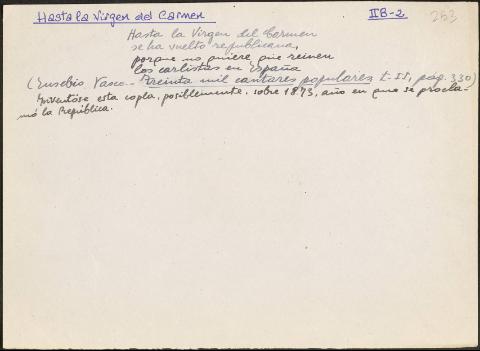 Hasta la Virgen del Carmen IIB-2 253
Hasta la Virgen del Carmen
se ha vuelto republicana,
porque no quiere que reinen
los carlistas en España
(Eusebio Vasco.- Treinta mil cantares populares t. II, pág. 330)
Inventóse esta copla, posiblemente, sobre 1873, año en que se procla-
mó la República.